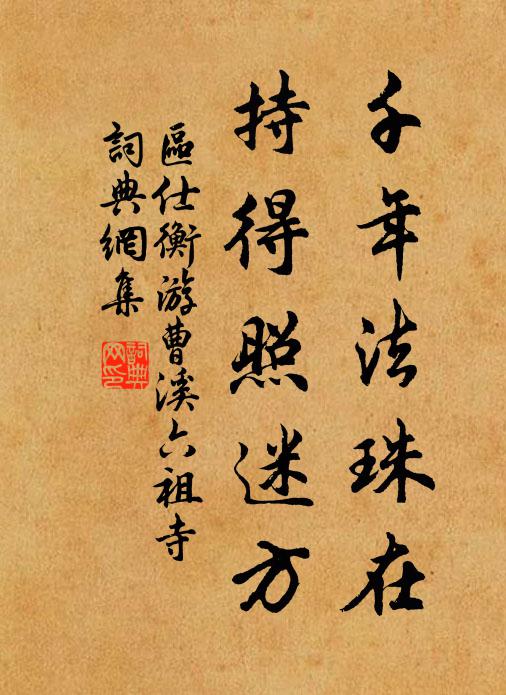 千年法珠在
持得照迷方
區仕衡游曹溪六祖寺
詞典網集
詞典网印